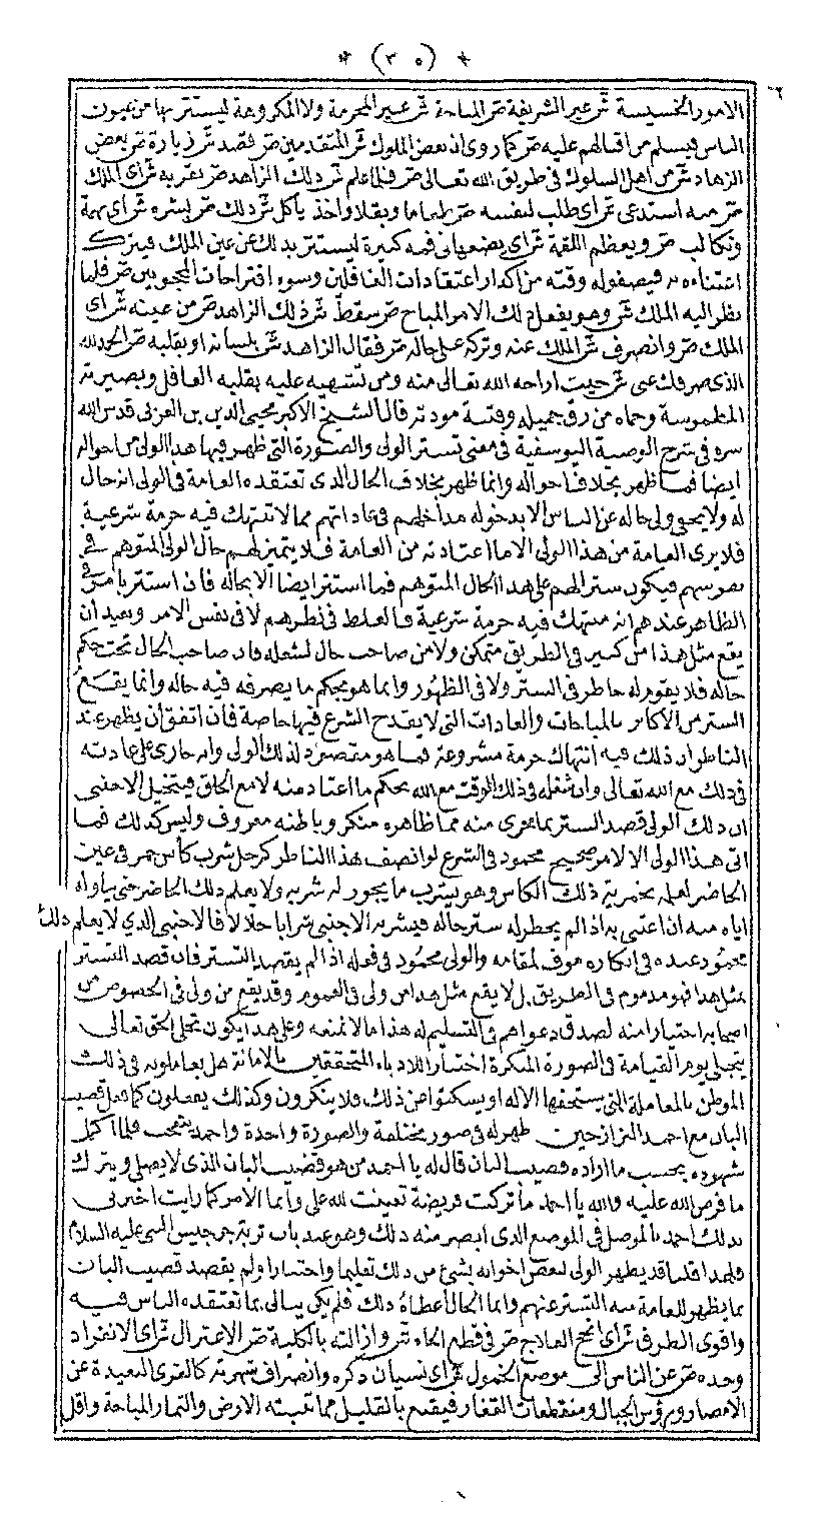 * (٣٠) *
الامور الخسيسة ش غير الشريفة ص المباحة ش غير المحرمة ولا المكروهة ليستتر بها من عيون
الناس فيسلم من اقبالهم عليه ص كما روى ان بعض الملوك ش المتقدمين ص قصد ش زيارة ص بعض
الزهاد ش من اهل السلوك فى طريق الله تعالى ص فلما علم ش ذلك الزاهد ص بقربه ش اى الملك
ص منه استدعى ش اى طلب لنفسه ص طعاما وبقلا واخذ ياكل ش ذلك ص بشره ش اى بهمة
وتكالب ص ويعظم اللقمة ش اى يضعها فى فمه كبيرة ليستتر بذلك عن عين الملك فيترك
اعتناءه به فيصفو له وقته من اكدار اعتقادات الغافلين وسوء اقتراحات المحجوبين ص فلما
نظر اليه الملك ش وهو يفعل ذلك الامر المباح ص سقط ش ذلك الزاهد ص من عينه ش اى
الملك ص وانصرف ش الملك عنه وتركه على حاله ص فقال الزاهد ش بلسانه او بقلبه ص الحمد لله
الذى صرفك عنى ش حيث اراحه الله تعالى منه ومن تشهيه عليه بقلبه الغافل وبصيرته
المطموسة وحماه من رق جميله وفتنة مودته قال الشيخ الاكبر محيى الدين بن العربى قدس الله
سره فى شرح الوصية اليوسفية فى معنى تستر الولى والصورة التى ظهر فيها هذا الولى من احواله
ايضا فما ظهر بخلاف احواله وانما ظهر بخلاف الحال الذى تعتقده العامة فى الولى انه حال
له ولا يحجب ولى حاله عن الناس الا بدخوله مداخلهم فى عاداتهم مما لا تنتهك فيه حرمة شرعية
فلا يرى العامة من هذا الولى الا ما اعتادته من العامة فلا يتميز لهم حال الولى المتوهم فى
نفوسهم فيكون ستر الهم على هذا الحال المتوهم فما استتر ايضا الا بحاله فان استتر بامر فى
الظاهر عندهم انه منتهك فيه حرمة شرعية فالغلط فى نظرهم لا فى نفس الامر وبعيد أن
يقع مثل هذا من كبير فى الطريق متمكن ولا من صاحب حال لشغله فان صاحب الحال تحت حكم
حاله فلا يقوم له خاطر فى الستر ولا فى الظهور وانما هو بحكم ما يصرفه فيه حاله وانما يقع
الستر من الاكابر بالمباحات والعادات التى لا يقدح الشرع فيها خاصة فان اتفق أن يظهر عند
الناظر ان ذلك فيه انتهاك حرمة مشروعة فما هو مقصود لذلك الولى وانه جارى على عادته
فى ذلك مع الله تعالى وان شغله فى ذلك الوقت مع الله بحكم ما اعتاد منه لا مع الخلق فيتخيل الاجنبى
ان ذلك الولى قصد الستر بما يجرى منه مما ظاهره منكر وباطنه معروف وليس كذلك فما
اتى هذا الولى الا لامر صحيح محمود فى الشرع لو انصف هذا الناظر كرجل شرب كأس خمر فى عين
الحاضر لعلمه بخمرية ذلك الكاس وهو يشرب ما يجوز له شربه ولا يعلم ذلك الحاضر حتى يناوله
اياه منه ان اعتنى به اذا لم يخطر له ستر حاله فيشربه الاجنبى شرابا حلالا فالاجنبى الذي لا يعلم ذلك
محمود عنده فى انكاره موف لمقامه والولى محمود فى فعله اذا لم يقصد التستر فان قصد التستر
بمثل هذا فهو مذموم فى الطريق بل لا يقع مثل هذا من ولى فى العموم وقد يقع من ولى فى الخصوص من
اصحابه اختبارا منه لصدق دعواهم فى التسليم له هذا ما لا نمنعه وعلى هذا يكون تجلى الحق تعالى
يتجلى يوم القيامة فى الصورة المنكرة اختبارا للادباء المتحققين بالامانة هل يعاملونه فى ذلك
الموطن بالمعاملة التى يستحقها الاله او يسكتوا عن ذلك فلا ينكرون وكذلك يفعلون كما فعل قضيب
البان مع احمد النزارحين ظهر له فى صور مختلفة والصورة واحدة واحمد يتعجب فلما اكمل
شهوده بحسب ما اراده قضيب البان قال له يا احمد من هو قضيب البان الذى لا يصلى ويترك
ما فرض الله عليه والله يا احمد ما تركت فريضة تعينت لله على وانما الامر كما رايت اخبرنى
بذلك احمد بالموصل فى الموضع الذى ابصر منه ذلك وهو عند باب تربة جرجيس النبى عليه السلام
فلهذا قلنا قد يظهر الولى لبعض اخوانه بشئ من ذلك تعليما واختبارا ولم يقصد قضيب البان
بما يظهر للعامة منه التستر عنهم وانما الحال اعطاه ذلك فلم يكن يبالى بما تعتقده الناس فيه
واقوى الطرق ش اى انجح العلاج ص فى قطع الجاه ش وازالته بالكلية ص الاعتزال ش اى الانفراد
وحده ص عن الناس الى موضع الخمول ش اى نسيان ذكره وانصراف شهرته كالقرى البعيدة عن
الامصار ورؤس الجبال ومنقطعات القفار فيقنع بالقليل مما تنبته الارض والثمار المباحة واقل